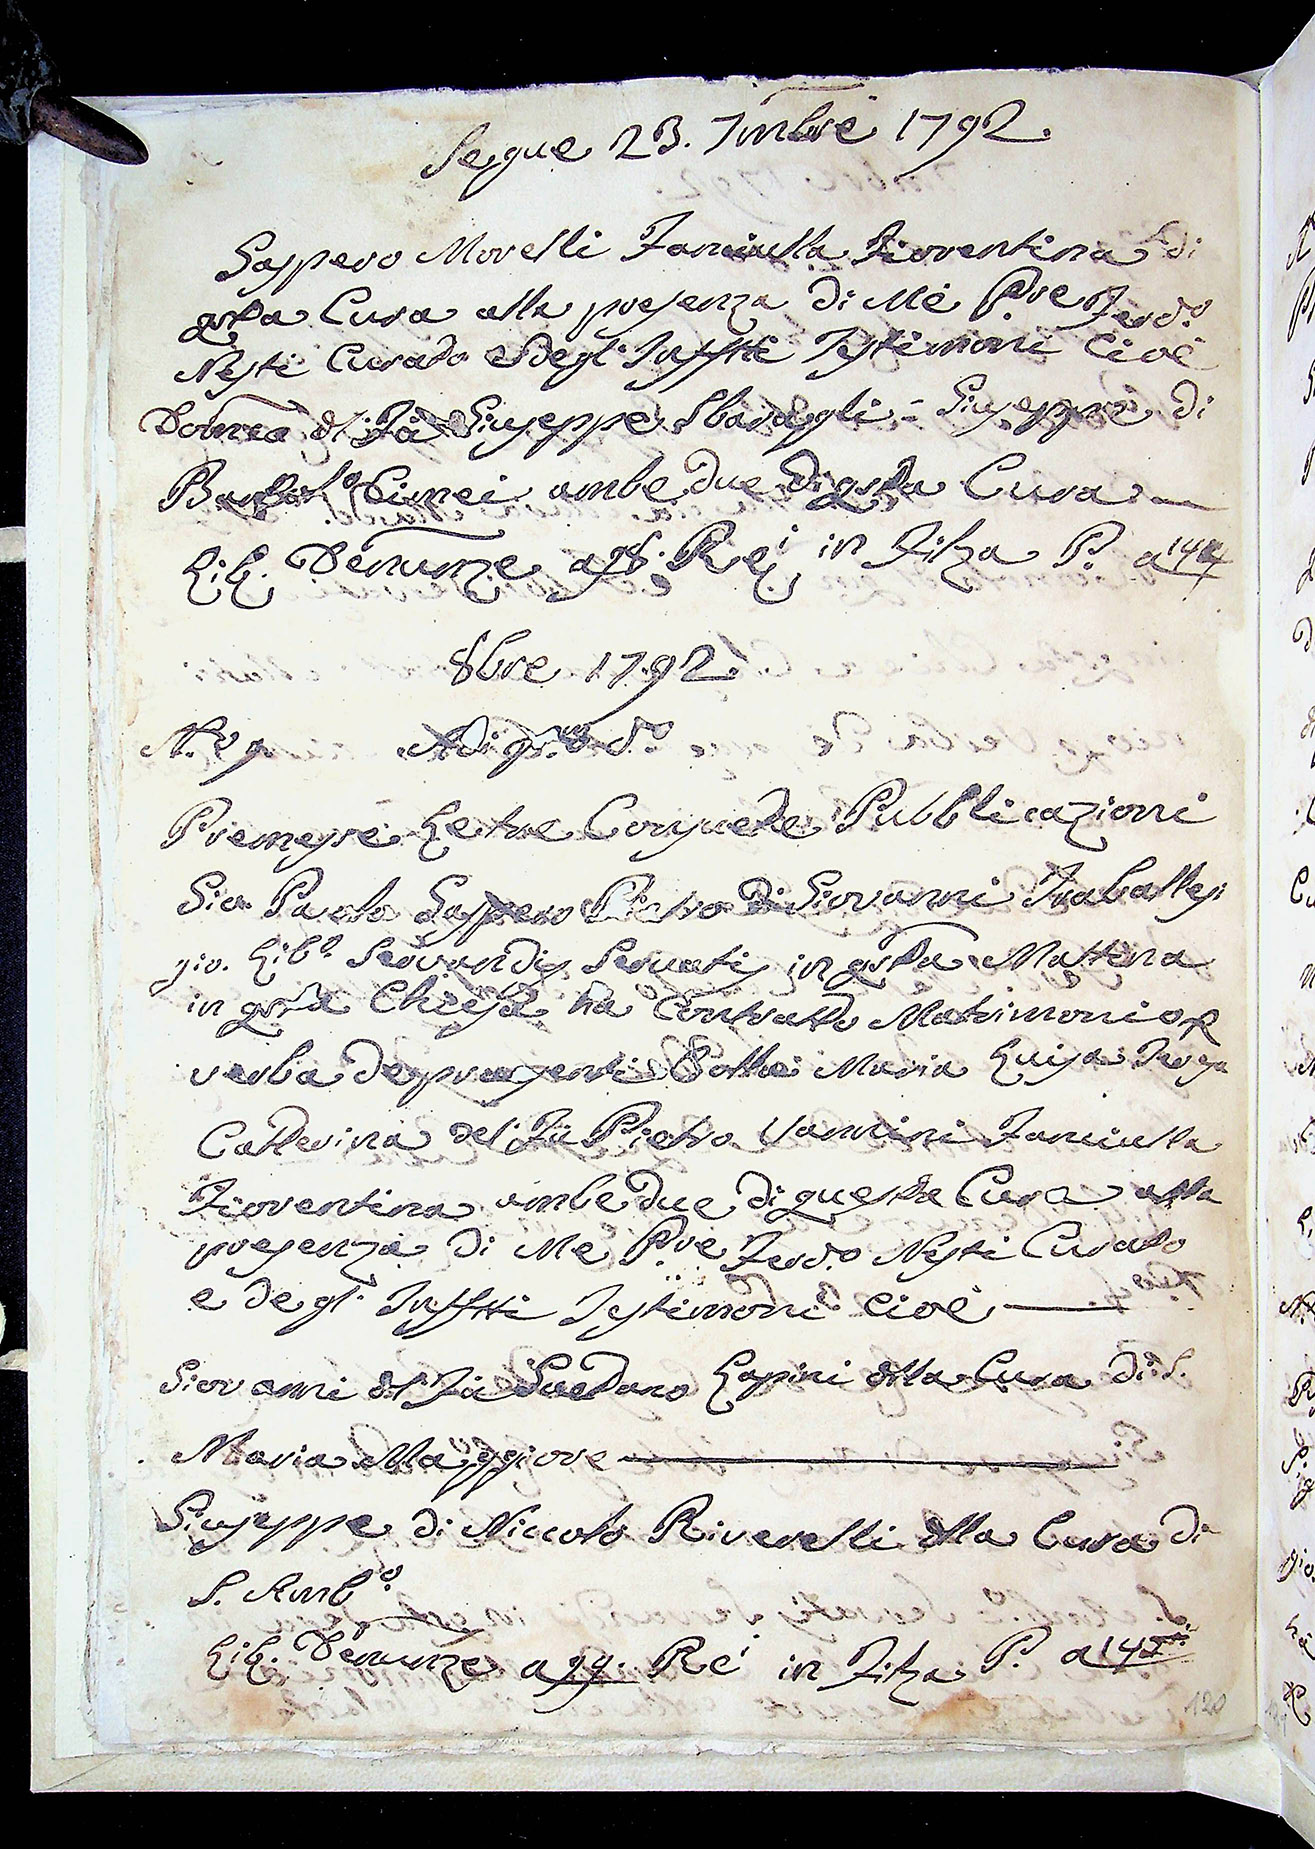 Segue 23. 7mbre 1792.
Gasppero Morelli Fanciulla Fiorentina di
qsta Cura alla presenza di Me Pre Ferd.o
Nesti Curato e degl' Infstti Testimoni cioè
Domco del Fù Giuseppe Sbaragli = Giuseppe di
Bartol.o Cimei ambe due di qsta Cura
Lib. Denunze a 98. Rei in Filza P. a 144
8bre 1792.
N.o 9 Adi pr.mo d.o
Premesse Le tre Consuete Pubblicazioni
Gio Paolo Gasppero Pietro di Giovanni Trabattesi
gio. Lib.o Servandis Servatis in qsta Mattina
in qsta Chiesa ha Contratto Matrimonio p
verba de praesenti Colla Maria Luisa Teresa
Catterina del Fù Pietro Vannini Fanciulla
Fiorentina ambe due di questa Cura alla
presenza di Me Pre Ferd.o Nesti Curato
e degl' Infstti Testimoni cioè
Giovanni del Fù Gaetano Lapini della Cura di S.
Maria Maggiore
Giuseppe di Niccolo Riverelli della Cura di
S. Amb.o
Lib. Denunze a 99. Rei in Filza P. a 145
120